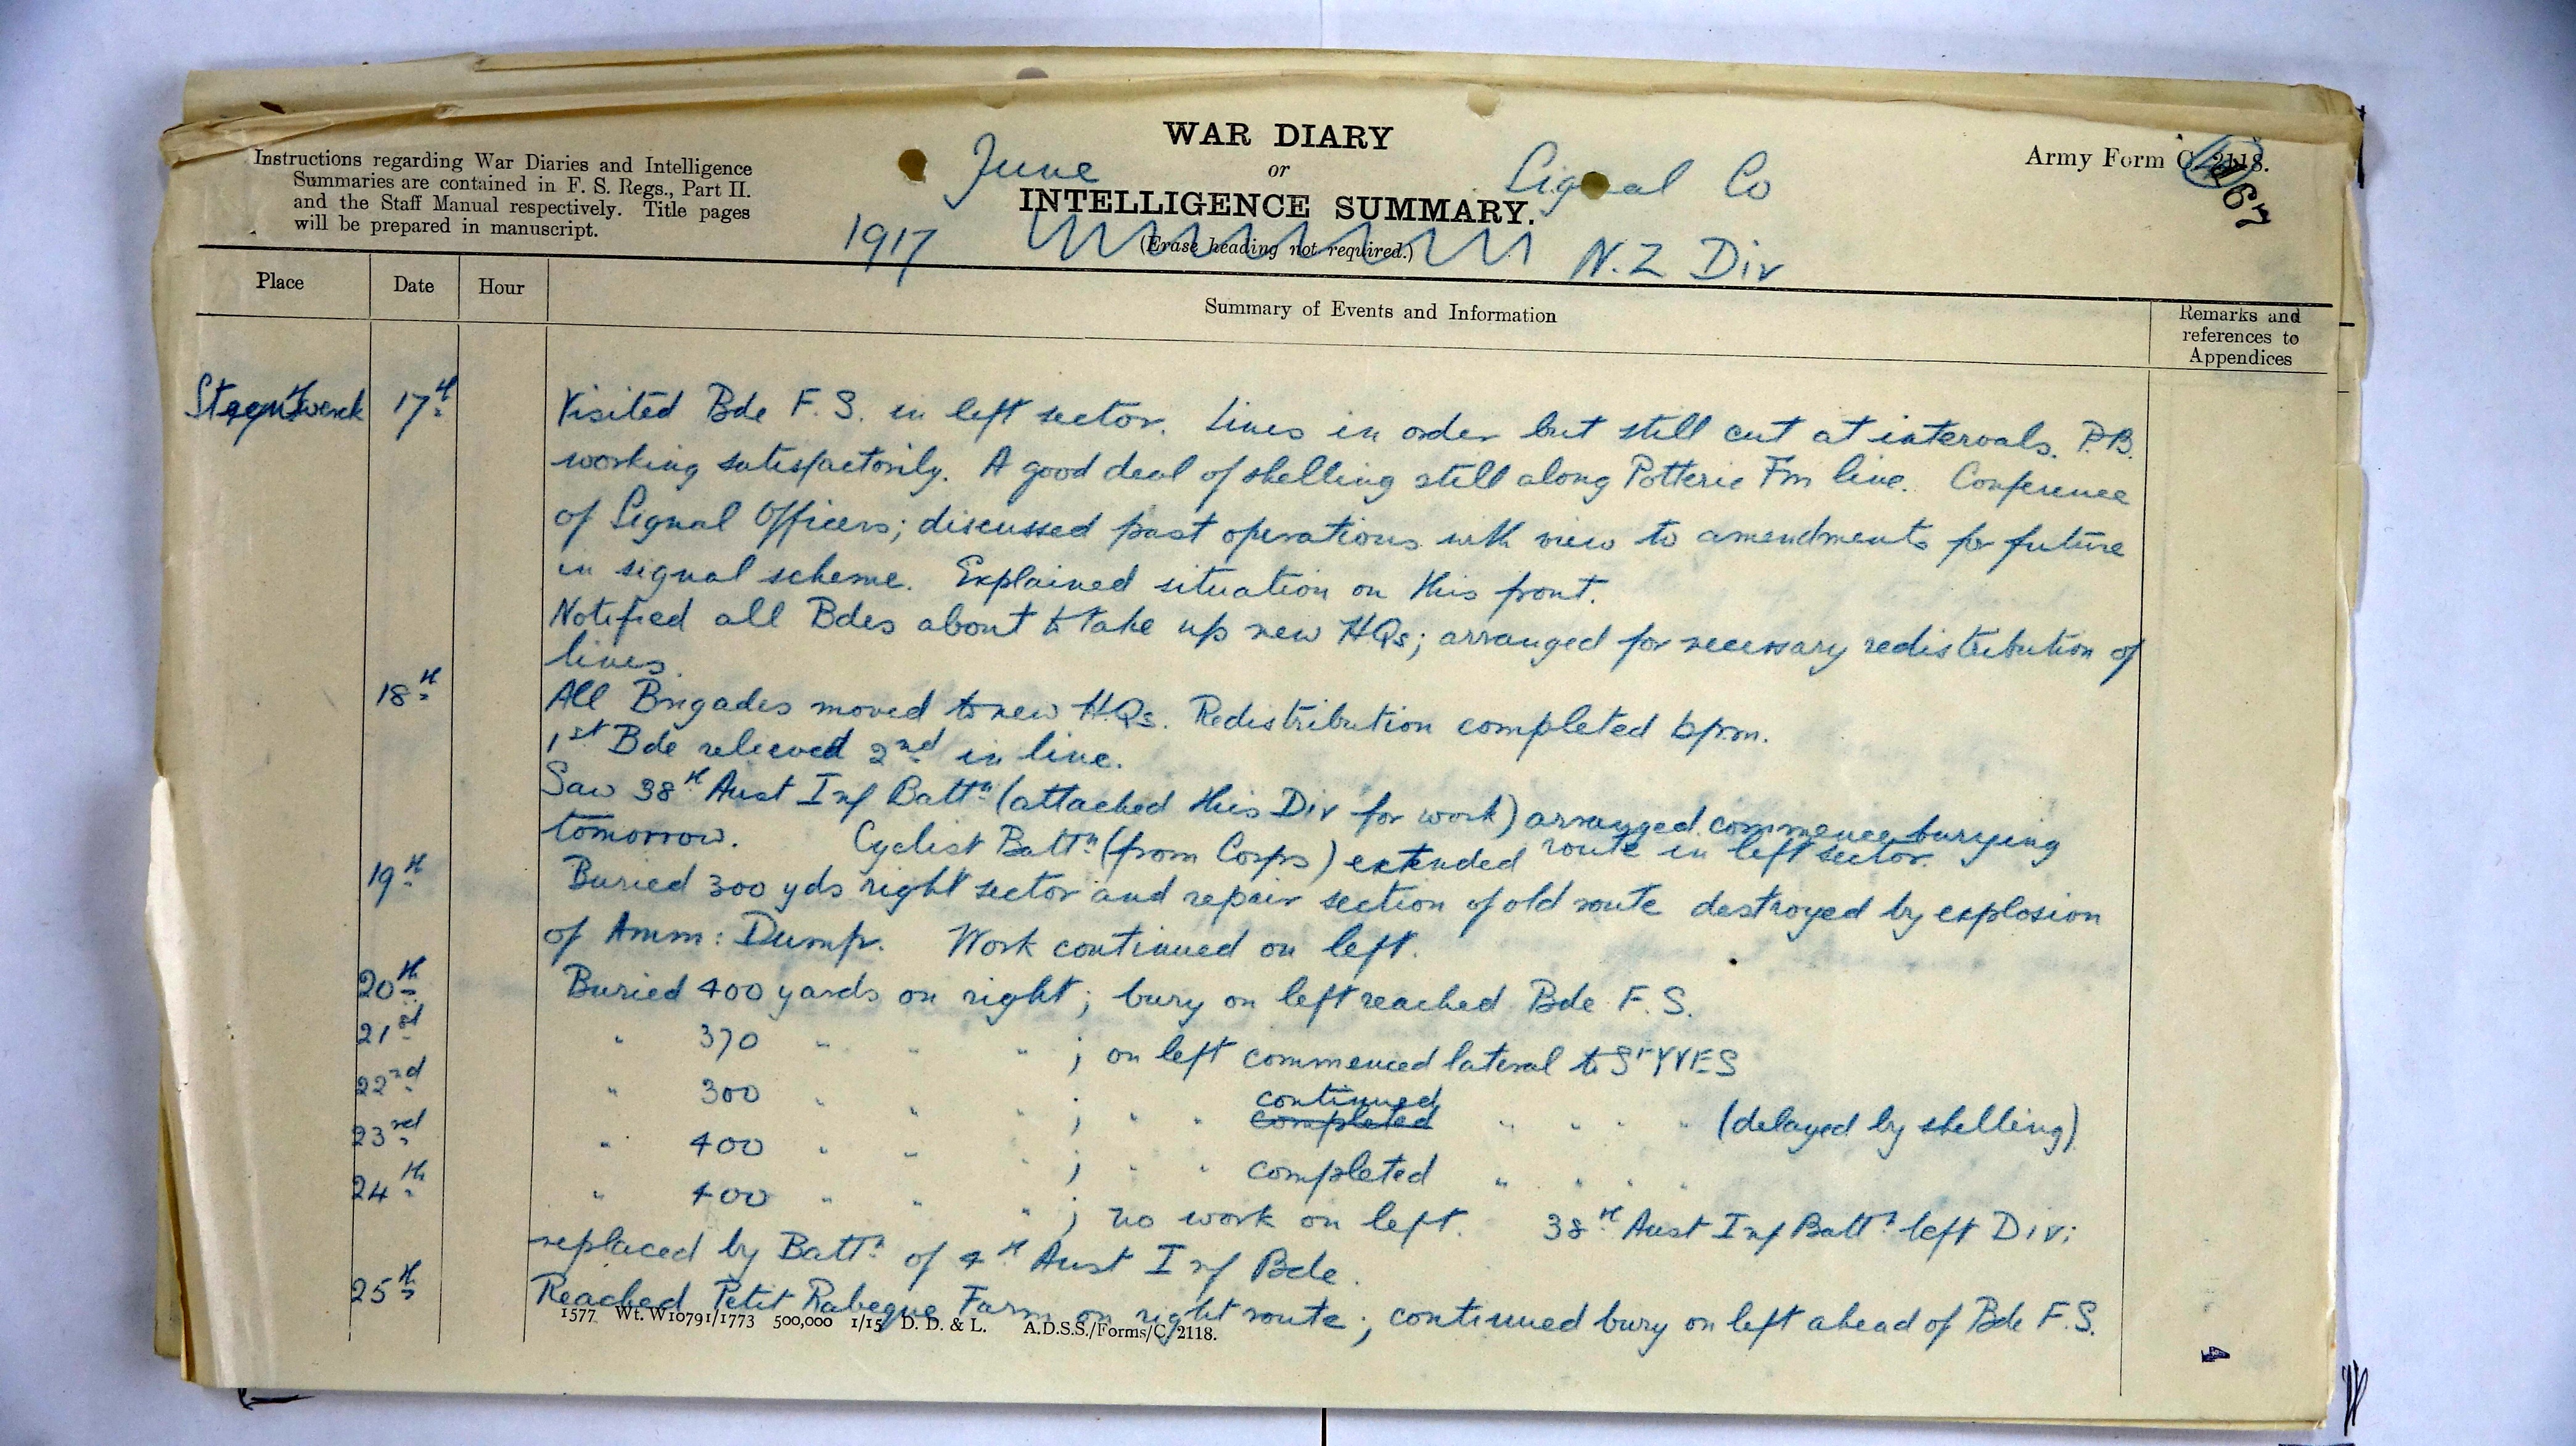 WAR DIARY
or
INTELLIGENCE SUMMARY.
(Erase heading not required.)
June
1917
Signal Co
N.Z Div
Army Form C. 2118.
Instructions regarding War Diaries and Intelligence
Summaries are contained in F. S. Regs., Part II.
and the Staff Manual respectively. Title pages
will be prepared in manuscript.
Place Date Hour Summary of Events and Information Remarks and references to Appendices
17th Visited Bde F. S. in left sector. Lines in order but still cut at intervals. P.B.
working satisfactorily. A good deal of shelling still along Potterie Fm line. Conference
of Signal Officers; discussed past operations with view to amendments for future
in signal scheme. Explained situation on this front.
Notified all Bdes about to take up new HQs; arranged for necessary redistribution of
lines.
18th All Brigades moved to new HQs. Redistribution completed 6pm.
1st Bde relieved 2nd in line.
Saw 38th Aust Inf Battn (attached this Div for work) arranged commence burying
tomorrow. Cyclist Battn (from Corps) extended route in left sector.
19th Buried 300 yds right sector and repair section of old route destroyed by explosion
of Amm: Dump. Work continued on left.
20th Buried 400 yards on right; bury on left reached Bde F. S.
21st " 370 " " " ; on left commenced lateral to St YVES
22nd " 300 " " " ; " " continued completed " " " " (delayed by shelling)
23rd " 400 " " " ; " " completed " " " "
24th " 400 " " " ; no work on left. 38th Aust Inf Battn left Div;
replaced by Battn of 4th Aust Inf Bde.
25th Reached Petit Rabeque Farm on right route; continued bury on left ahead of Bde F.S.
1577 Wt. W10791/1773 500,000 1/15 D. D. & L. A.D.S.S./Forms/C. 2118.